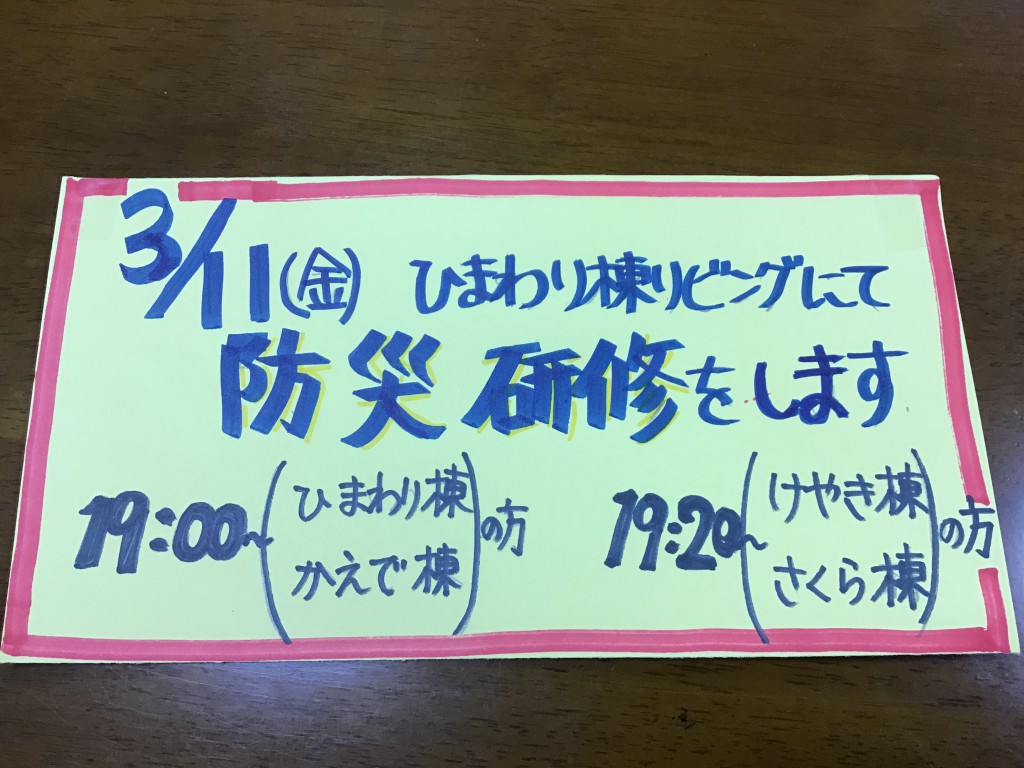 3/11(金) ひまわり棟リビングにて
防災研修をします
19:00~(ひまわり棟 かえで棟)の方
19:20~(けやき棟 さくら棟)の方